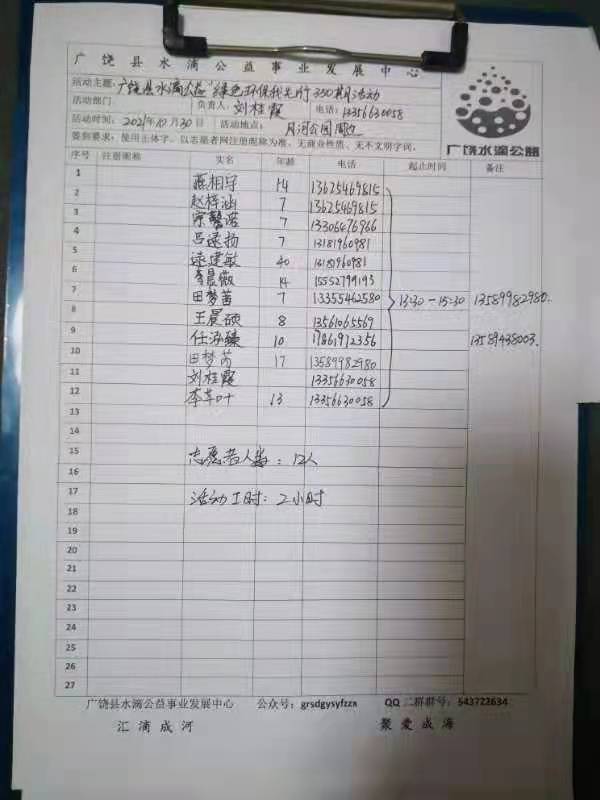 广饶县水滴公益事业发展中心
活动主题：广饶县水滴公益"绿色环保我先行"350期活动
活动部门 负责人：刘桂霞 电话：13356630058
活动时间：2021年10月30日 活动地点：月河公园周边
签到要求：使用正体字，以志愿者网注册昵称为准，无商业性质、无不文明字词。
广饶水滴公益
序号 注册昵称 实名 年龄 电话 起止时间 备注
1 燕相守 14 13625469815
2 赵梓涵 7 13625469815
3 宗馨诺 7 13306476966
4 吕逯扬 7 13181960981
5 逯建敏 40 13181960981
6 李晨薇 14 15552799193
7 田梦苗 7 13355462580 13:30-15:30 13589982980
8 王晨硕 8 13561065569
9 任泓臻 10 17861972356 13589438003.
10 田梦芮 17 13589982980
11 刘桂霞 13356630058
12 李苹叶 13 13356630058
13
14
15 志愿者人数：12人
16
17 活动工时：2小时
18
19
20
21
22
23
24
25
26
27
广饶县水滴公益事业发展中心 公众号：grsdgysyfzzx QQ二群群号：543722634
汇滴成河 聚爱成海